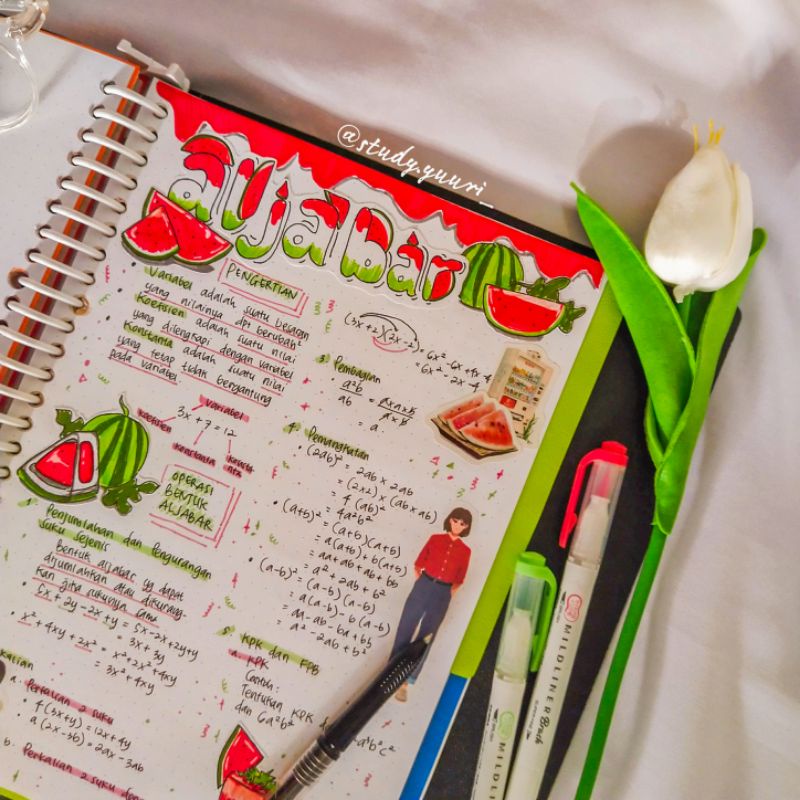 @study.yuuri_
aljabar
PENGERTIAN
• Variabel adalah suatu besaran
yang nilainya dpt berubah²
Koefisien adalah suatu nilai
yang dilengkapi dengan variabel
Konstanta adalah suatu nilai
yang tetap tidak bergantung
pada variabel.
Variabel
3x + 7 = 12
koefisien
Konstanta
OPERASI
BENTUK
ALJABAR
Penjumlahan dan Pengurangan
suku sejenis
Bentuk aljabar yg dapat
dijumlahkan atau dikurang
kan jika sukunya sama
• 5x + 2y - 2x + y = 5x - 2x + 2y + y
= 3x + 3y
• x² + 4xy + 2x² = x² + 2x² + 4xy
= 3x² + 4xy
kalian
a. Perkalian 2 suku
• 4(3x + y) = 12x + 4y
• a(2x - 3b) = 2ax - 3ab
b. Perkalian 2 suku
(3x+2)(2x-2) = 6x² - 6x + 4x - 4
= 6x² - 2x - 4
3. Pembagian
• a²b
ab
= a×a×b
a×b
= a
4. Pemangkatan
• (2ab)² = 2ab × 2ab
= (2×2) × (ab × ab)
= 4 (ab)²
= 4a²b²
• (a+b)² = (a+b)(a+b)
= a(a+b) + b(a+b)
= aa + ab + ab + bb
= a² + 2ab + b²
• (a-b)² = (a-b)(a-b)
= a(a-b) - b(a-b)
= aa - ab - ba + bb
= a² - 2ab + b²
5. KPK dan FPB
a. KPK
Contoh:
Tentukan KPK
dan 6a²b²
MILDLINER
MILDLINER Brush